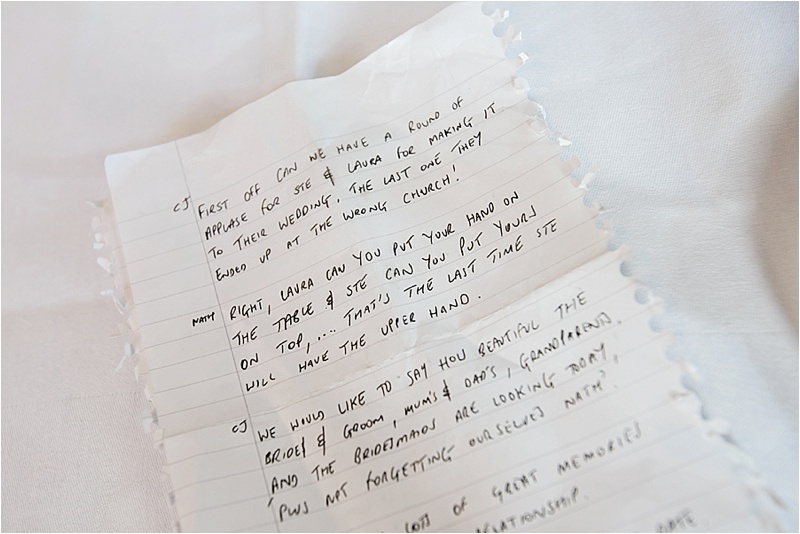 CJ FIRST OFF CAN WE HAVE A ROUND OF
APPLASE FOR STE & LAURA FOR MAKING IT
TO THEIR WEDDING, THE LAST ONE THEY
ENDED UP AT THE WRONG CHURCH!
NATH RIGHT, LAURA CAN YOU PUT YOUR HAND ON
THE TABLE & STE CAN YOU PUT YOURS
ON TOP, .... THAT'S THE LAST TIME STE
WILL HAVE THE UPPER HAND.
CJ WE WOULD LIKE TO SAY HOW BEAUTIFUL THE
BRIDE & GROOM, MUM'S & DAD'S, GRANDPARENTS,
AND THE BRIDESMAIDS ARE LOOKING TODAY,
'PLUS NOT FORGETTING OURSELVES NATH'.
LOTS OF GREAT MEMORIES
RELATIONSHIP.